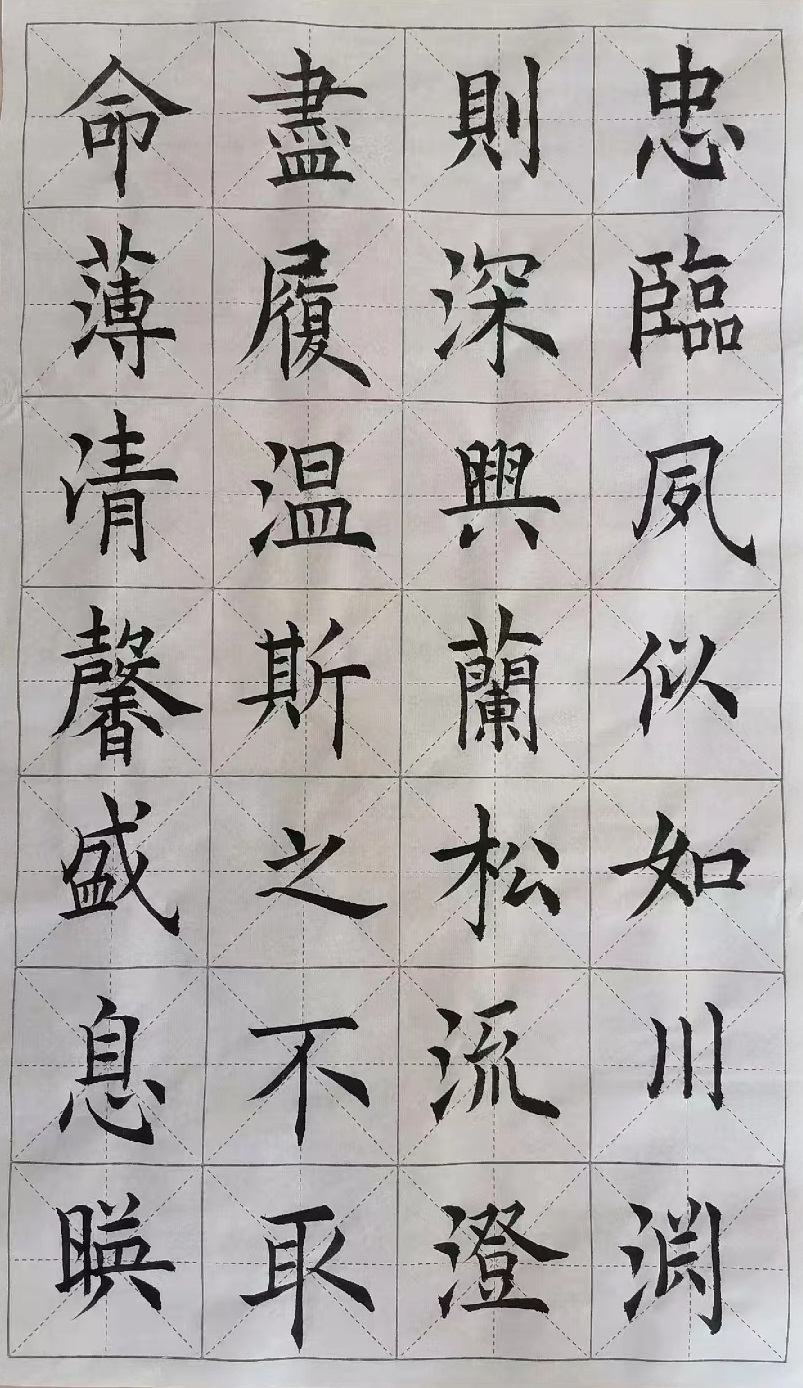 忠則盡命
臨深履薄
夙興温凊
似蘭斯馨
如松之盛
川流不息
淵澄取暎